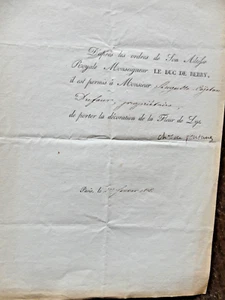 D'après les ordres de Son Altesse
Royale Monseigneur LE DUC DE BERRY,
il est permis à Monsieur
Dufour, propriétaire,
de porter la décoration de la Fleur de Lys.
Paris, le février